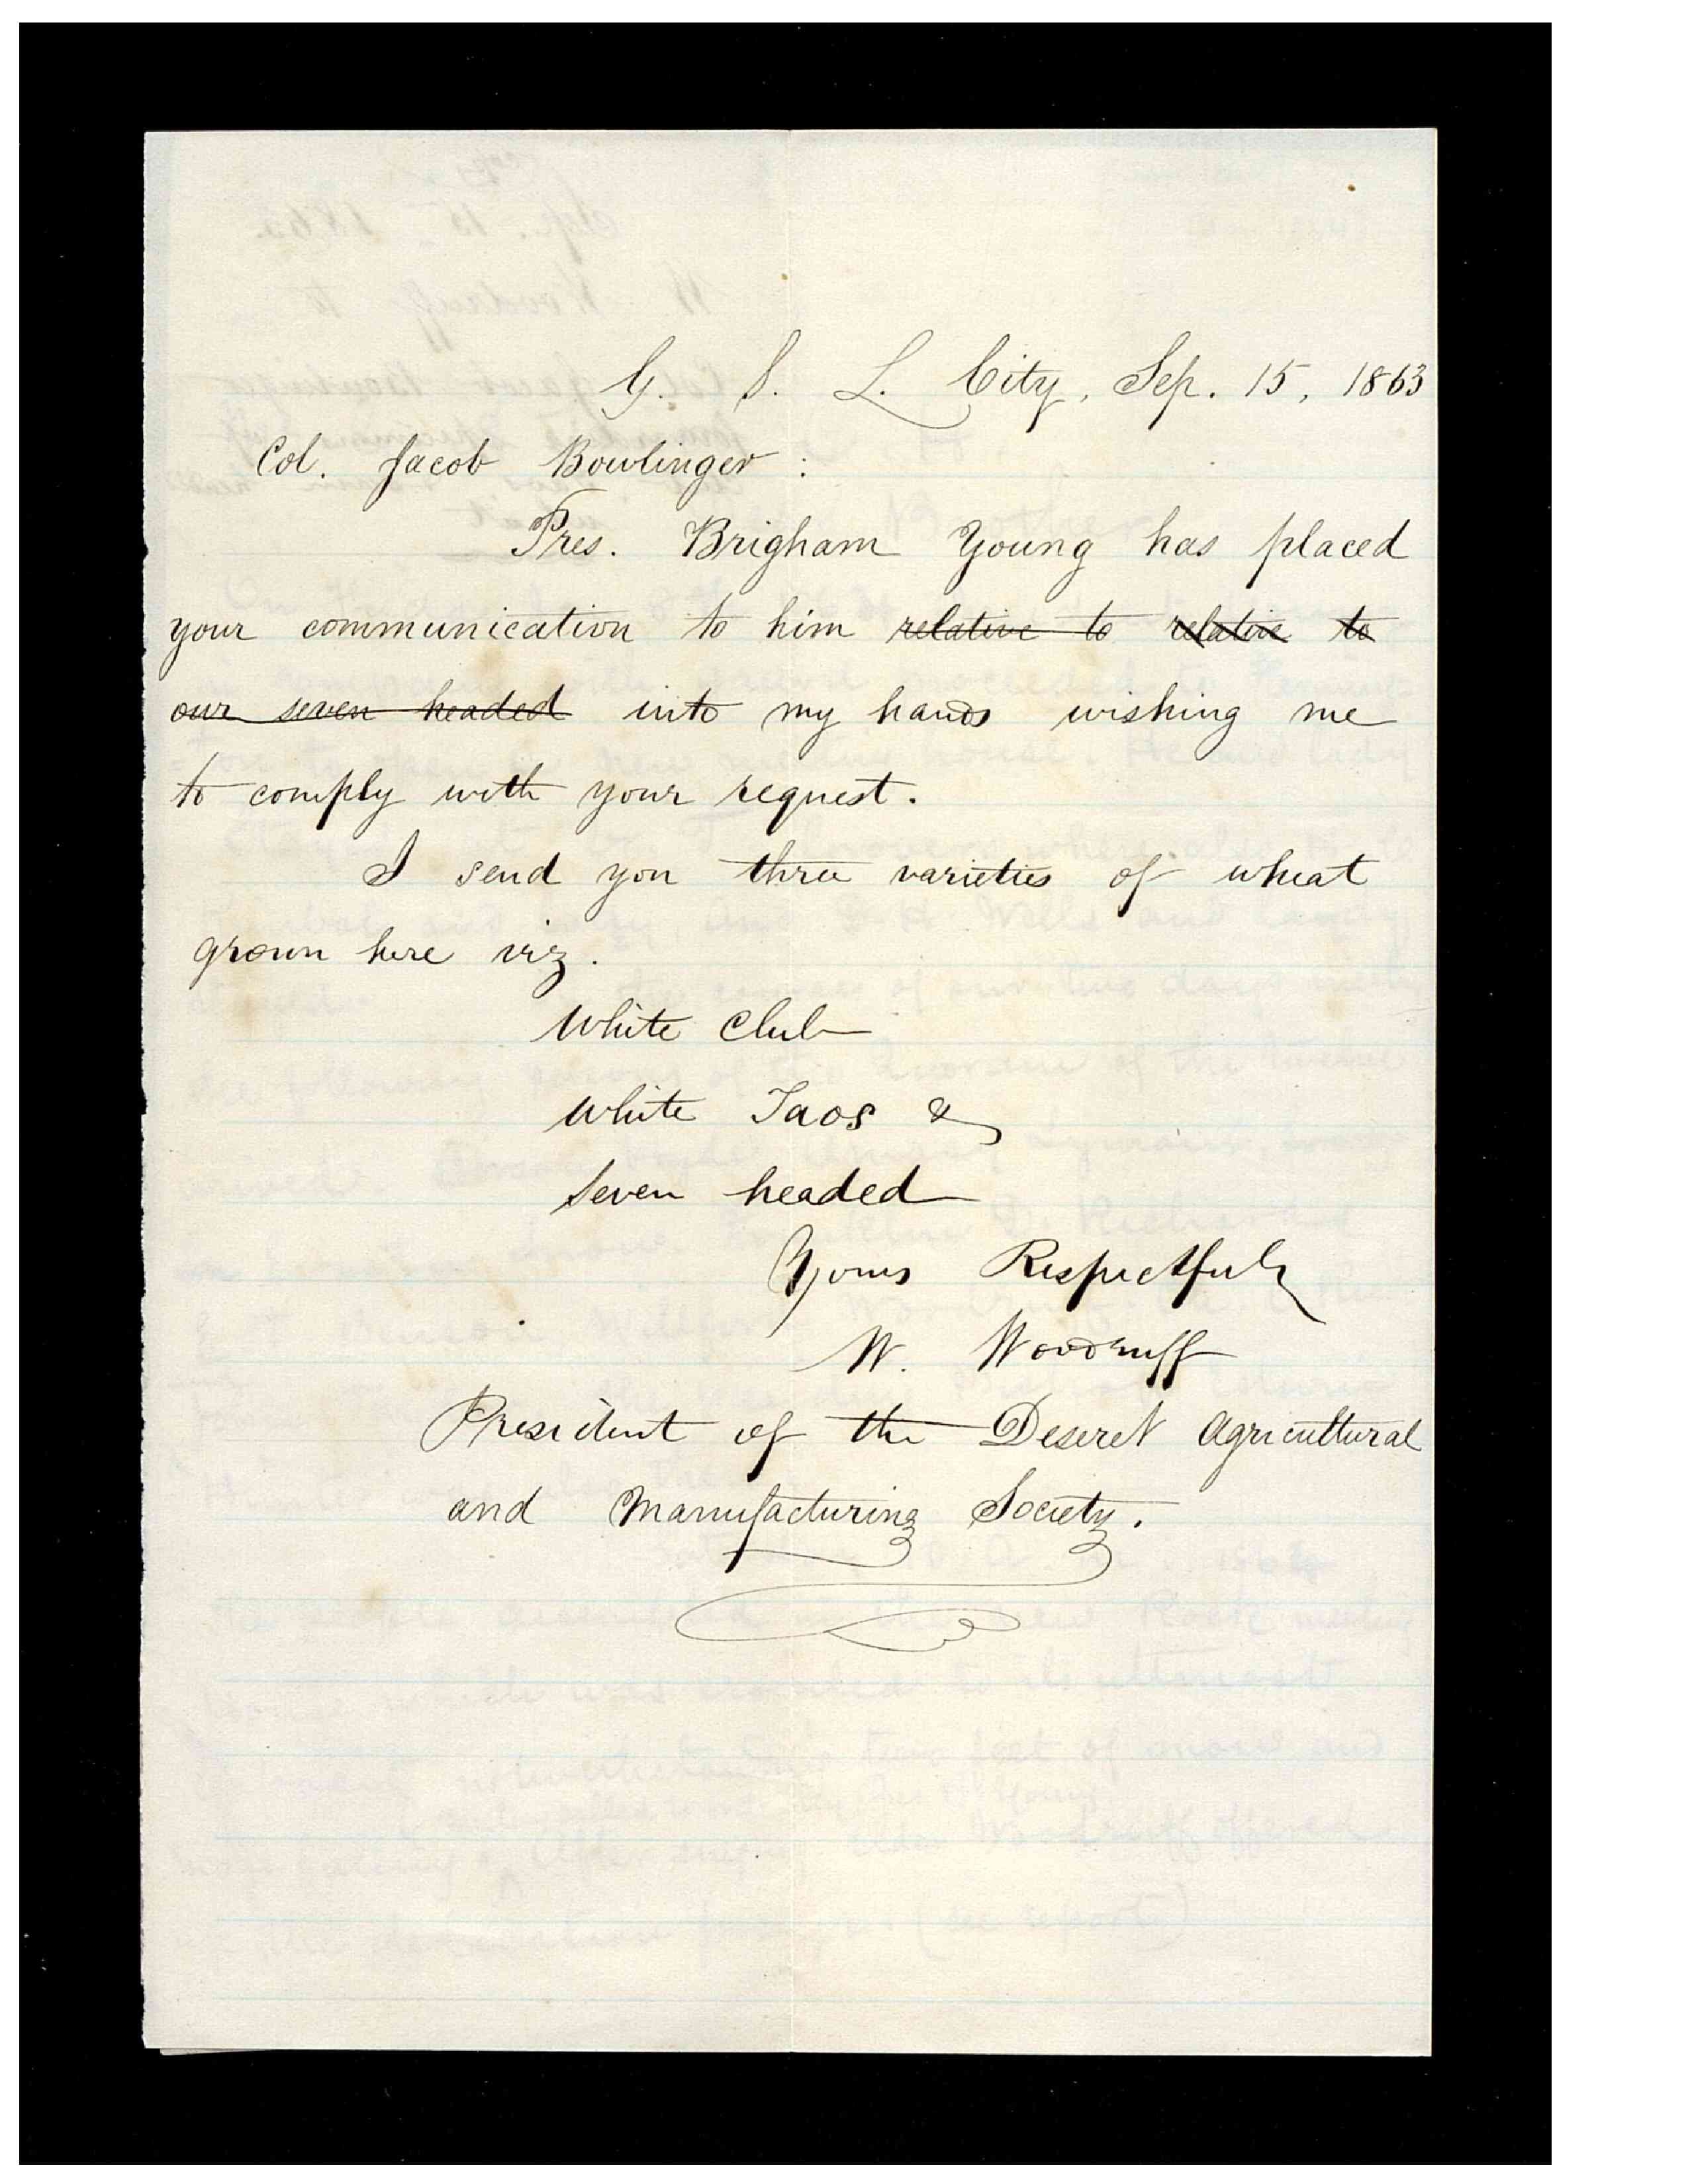 G. S. L. City, Sep. 15, 1863
Col. Jacob Bowlinger :
Pres. Brigham Young has placed
your communication to him relative to relative to
our seven headed into my hands wishing me
to comply with your request.
I send you three varieties of wheat
grown here viz.
White Club
White Taos &
Seven headed
Yours Respectfully
W. Woodruff
President of the Deseret Agricultural
and Manufacturing Society.